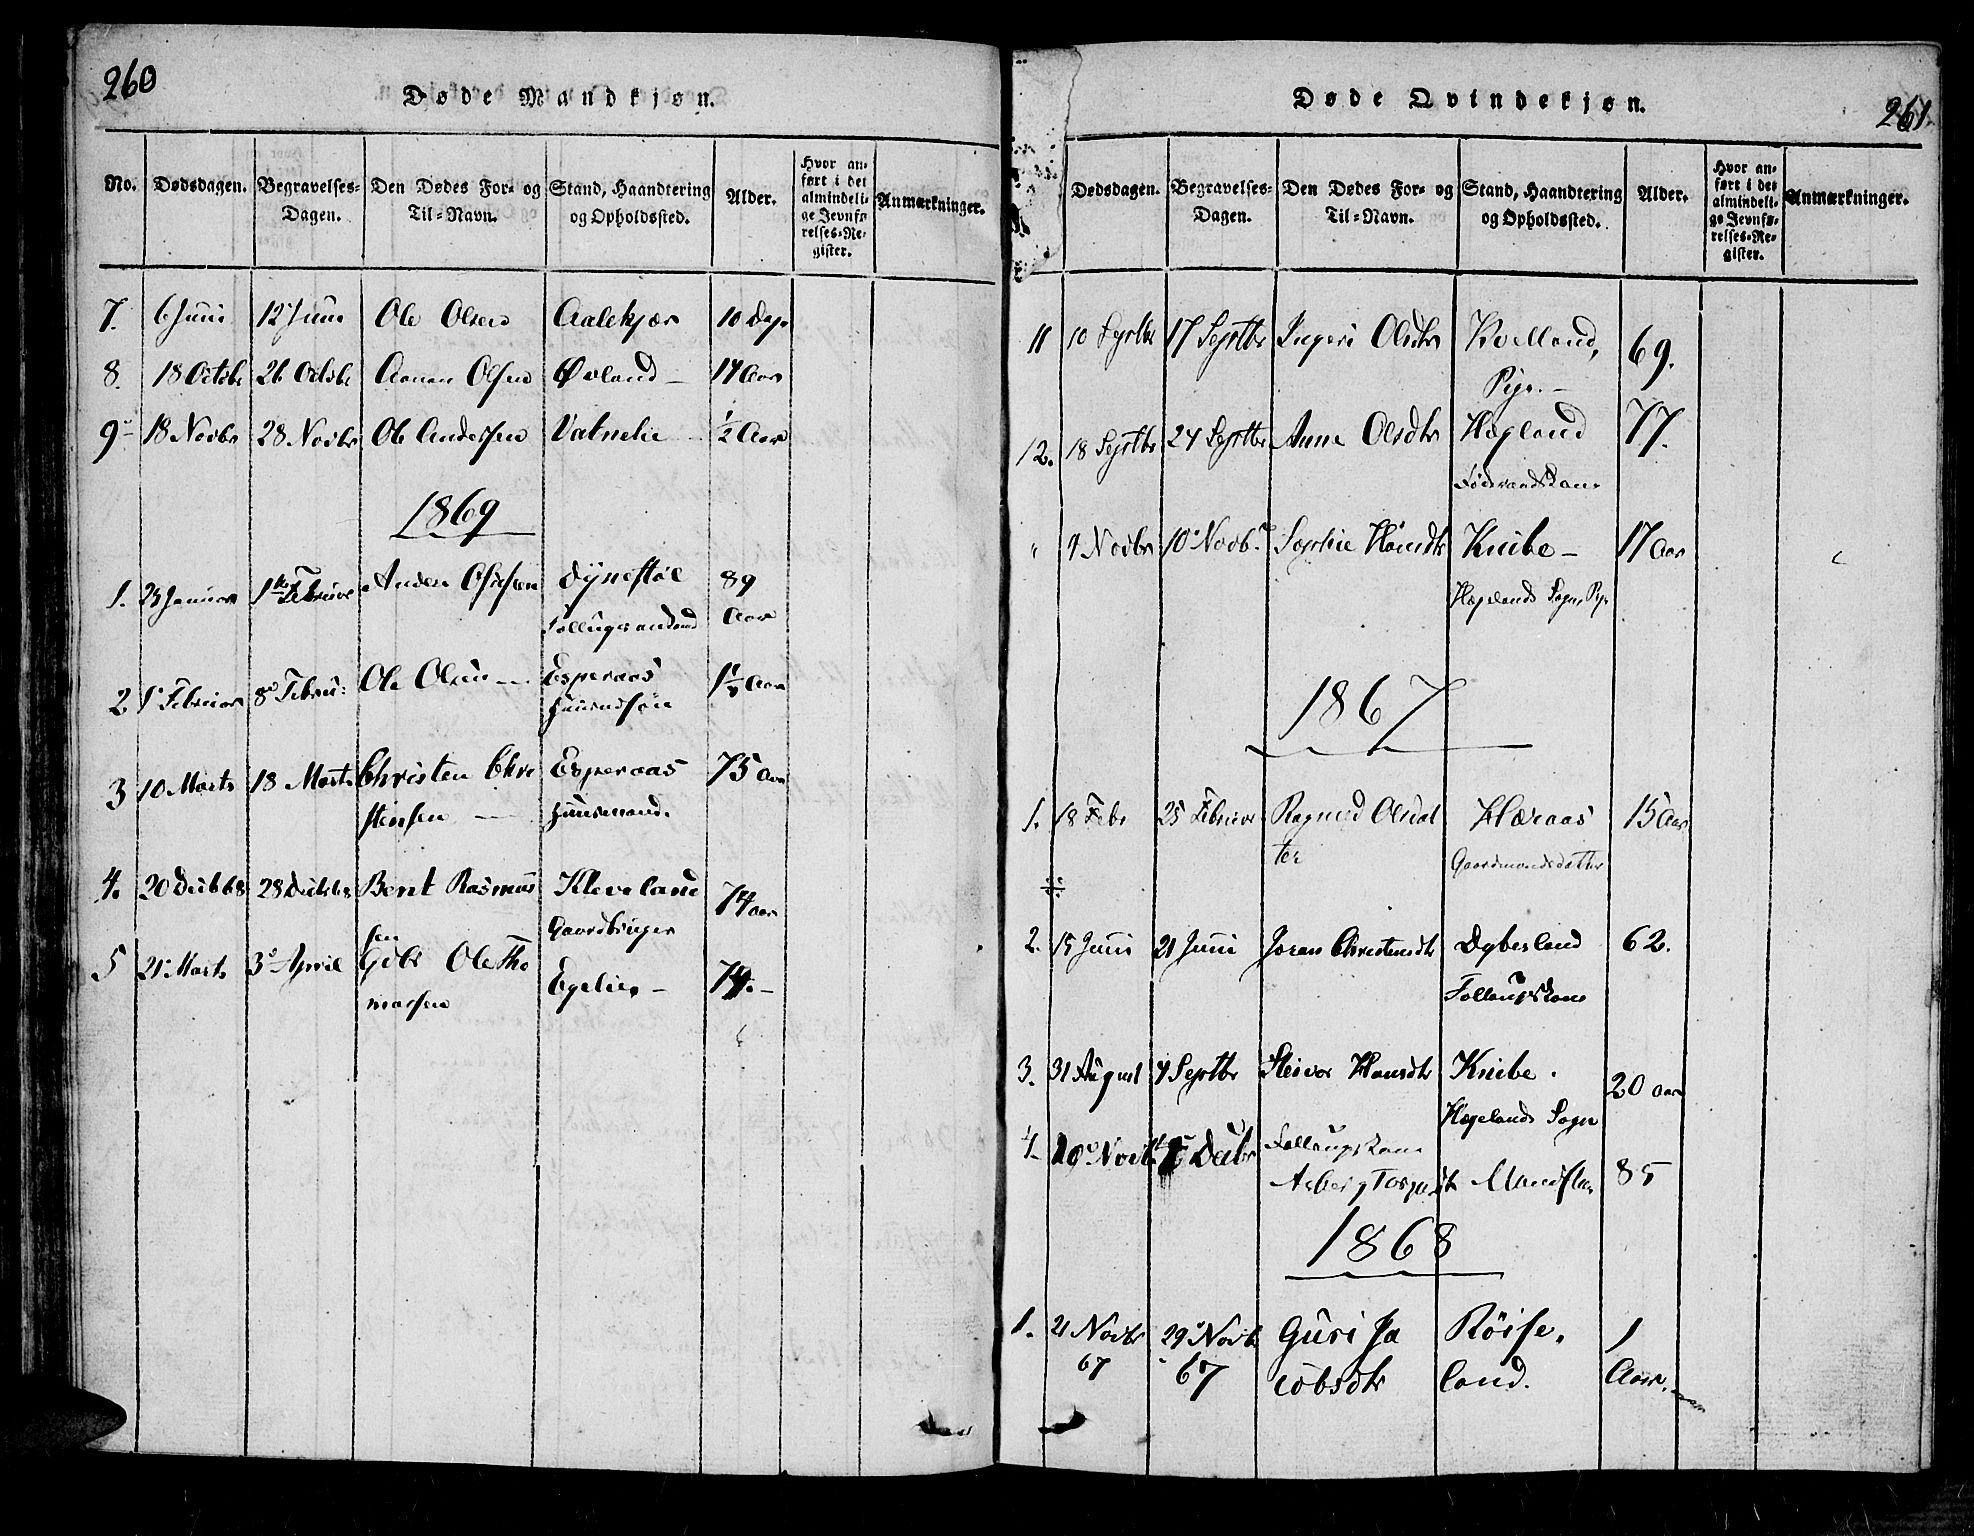 260
Døde Mandkjøn.
No. Dødsdagen. Begravelses-Dagen. Den Dødes For- og Til-Navn. Stand, Haandtering og Opholdssted. Alder. Hvor anført i det almindelige Jevnførelses-Register. Anmærkninger.
7. 6 Juni 12 Juni Ole Olsen Aalekjær 10 Dage
8. 18 Octobr 26 Octobr Aanen Olsen Øvland – 17 Aar
9 18 Novbr 28 Novbr Ole Andersen Vatnelie ½ Aar
1869
1. 23 Januar 1ste Februar Anders Dynestøl 89
Aar
2 1 Februar 8 Febru: Ole Olsen Esperaas Aar
3 10 Marts 18 Marts Christen Chri Esperaas 75 Aar
stensen – Huusmand.
4. 20 Decb 68 28 Decb 68 Bent Rasmus Kleveland 74 aar
sen Gaardbruger
5 21 Marts 3 April Ole Tho Egelie, – 74. –
massen
261.
Døde Qvindekjøn.
Dødsdagen. Begravelses-Dagen. Den Dødes For- og Til-Navn. Stand, Haandtering og Opholdssted. Alder. Hvor anført i det almindelige Jevnførelses-Register. Anmærkninger.
11 10 Septbr 17 Septbr Ingeri Olsdtr Kvelland, 69.
Pige. –
12. 18 Septbr 24 Septbr Anne Olsdtr Hægland 77.
Føderaadskone
" Novbr 10 Novbr Sophie Hansdtr Knibe – 17 Aar
Hægelands Sogn, Pige
1867
1. 18 Febr 25 Februar Ragnild Olsdat Hæraas 15 Aar
ter Gaardmandsdatter
2. 15 Juni 21 Juni Joran Christensdtr Dybesland 62.
3. 31 August 7 Septbr Steivor Hansdtr Knibe. 20 aar
Hægelands Sogn
4 Decbr
Asberg 85
1868
1. 21 Novbr 29 Novbr Guri Ja Røise, 1
67 67 cobsdtr land. Aar.